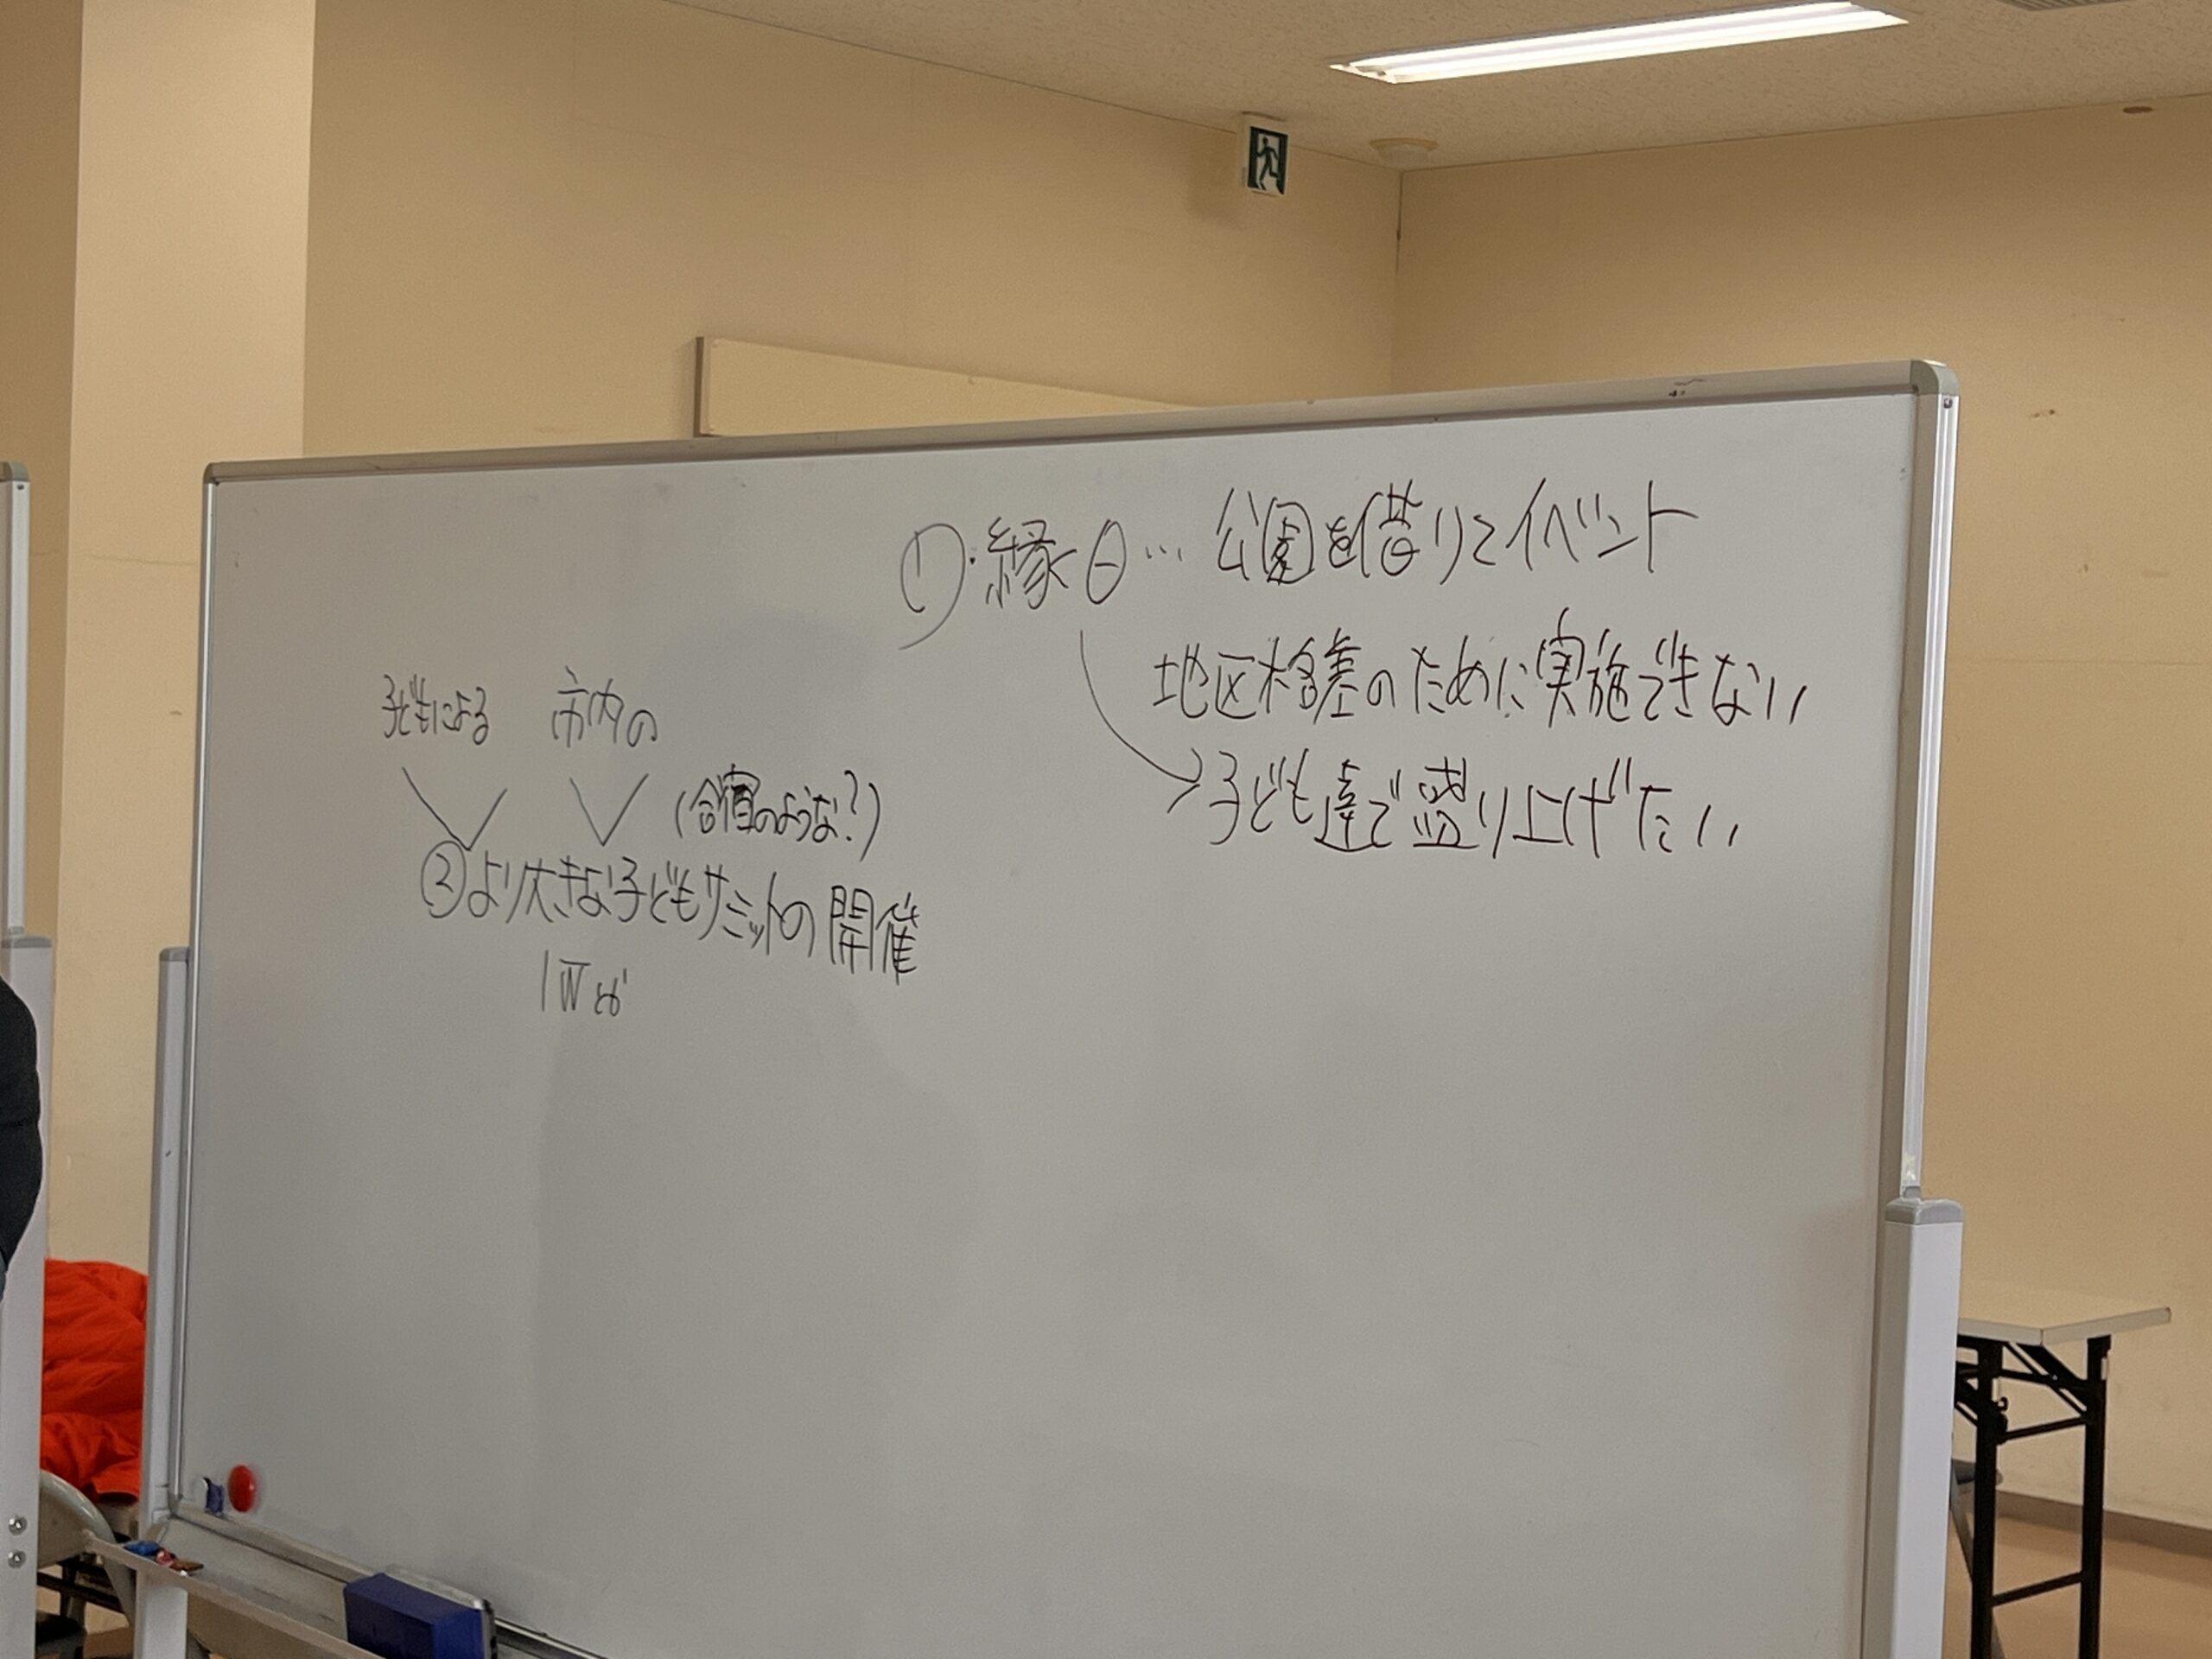 ①・縁日… 公園を借りてイベント
地区格差のために実施できない
→子ども達で盛り上げたい
子どもによる 市内の
(合宿のような?)
②より大きな子どもサミットの開催
1Wとか